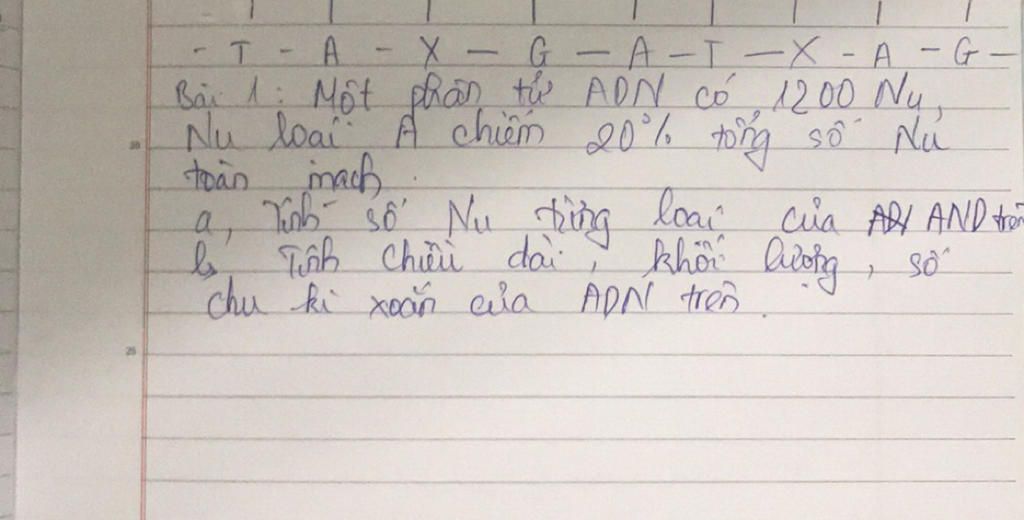 - T - A - X - G - A - T - X - A - G -
Bài 1: Một phân tử ADN có 1200 Nu,
Nu loại A chiếm 20% tổng số Nu
toàn mạch.
a, Tính số Nu từng loại của AND trên
b, Tính chiều dài, khối lượng, số
chu kì xoắn của ADN trên.